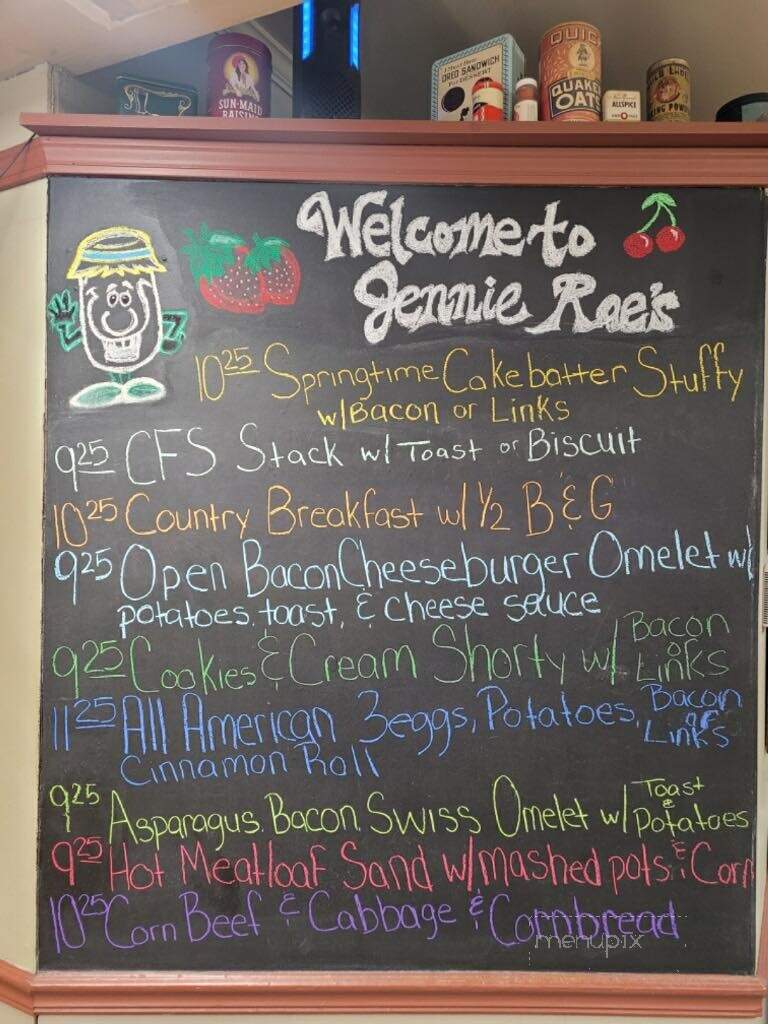 SUN-MAID
RAISINS
I Must Have
OREO SANDWICH
For DESSERT
QUICK
QUAKER
OATS
ALLSPICE
Welcome to
Jennie Rae's
10 25 Springtime Cakebatter Stuffy
w/Bacon or Links
9 25 CFS Stack w/ Toast or Biscuit
10 25 Country Breakfast w/ 1/2 B & G
9 25 Open Bacon Cheeseburger Omelet w/
potatoes, toast, & cheese sauce
9 25 Cookies & Cream Shorty w/ Bacon or Links
11 25 All American 3eggs, Potatoes, Bacon or Links
Cinnamon Roll
9 25 Asparagus, Bacon, Swiss Omelet w/ Toast & Potatoes
9 25 Hot Meatloaf Sand w/mashed pots & Corn
10 25 Corn Beef & Cabbage & Cornbread
menupix